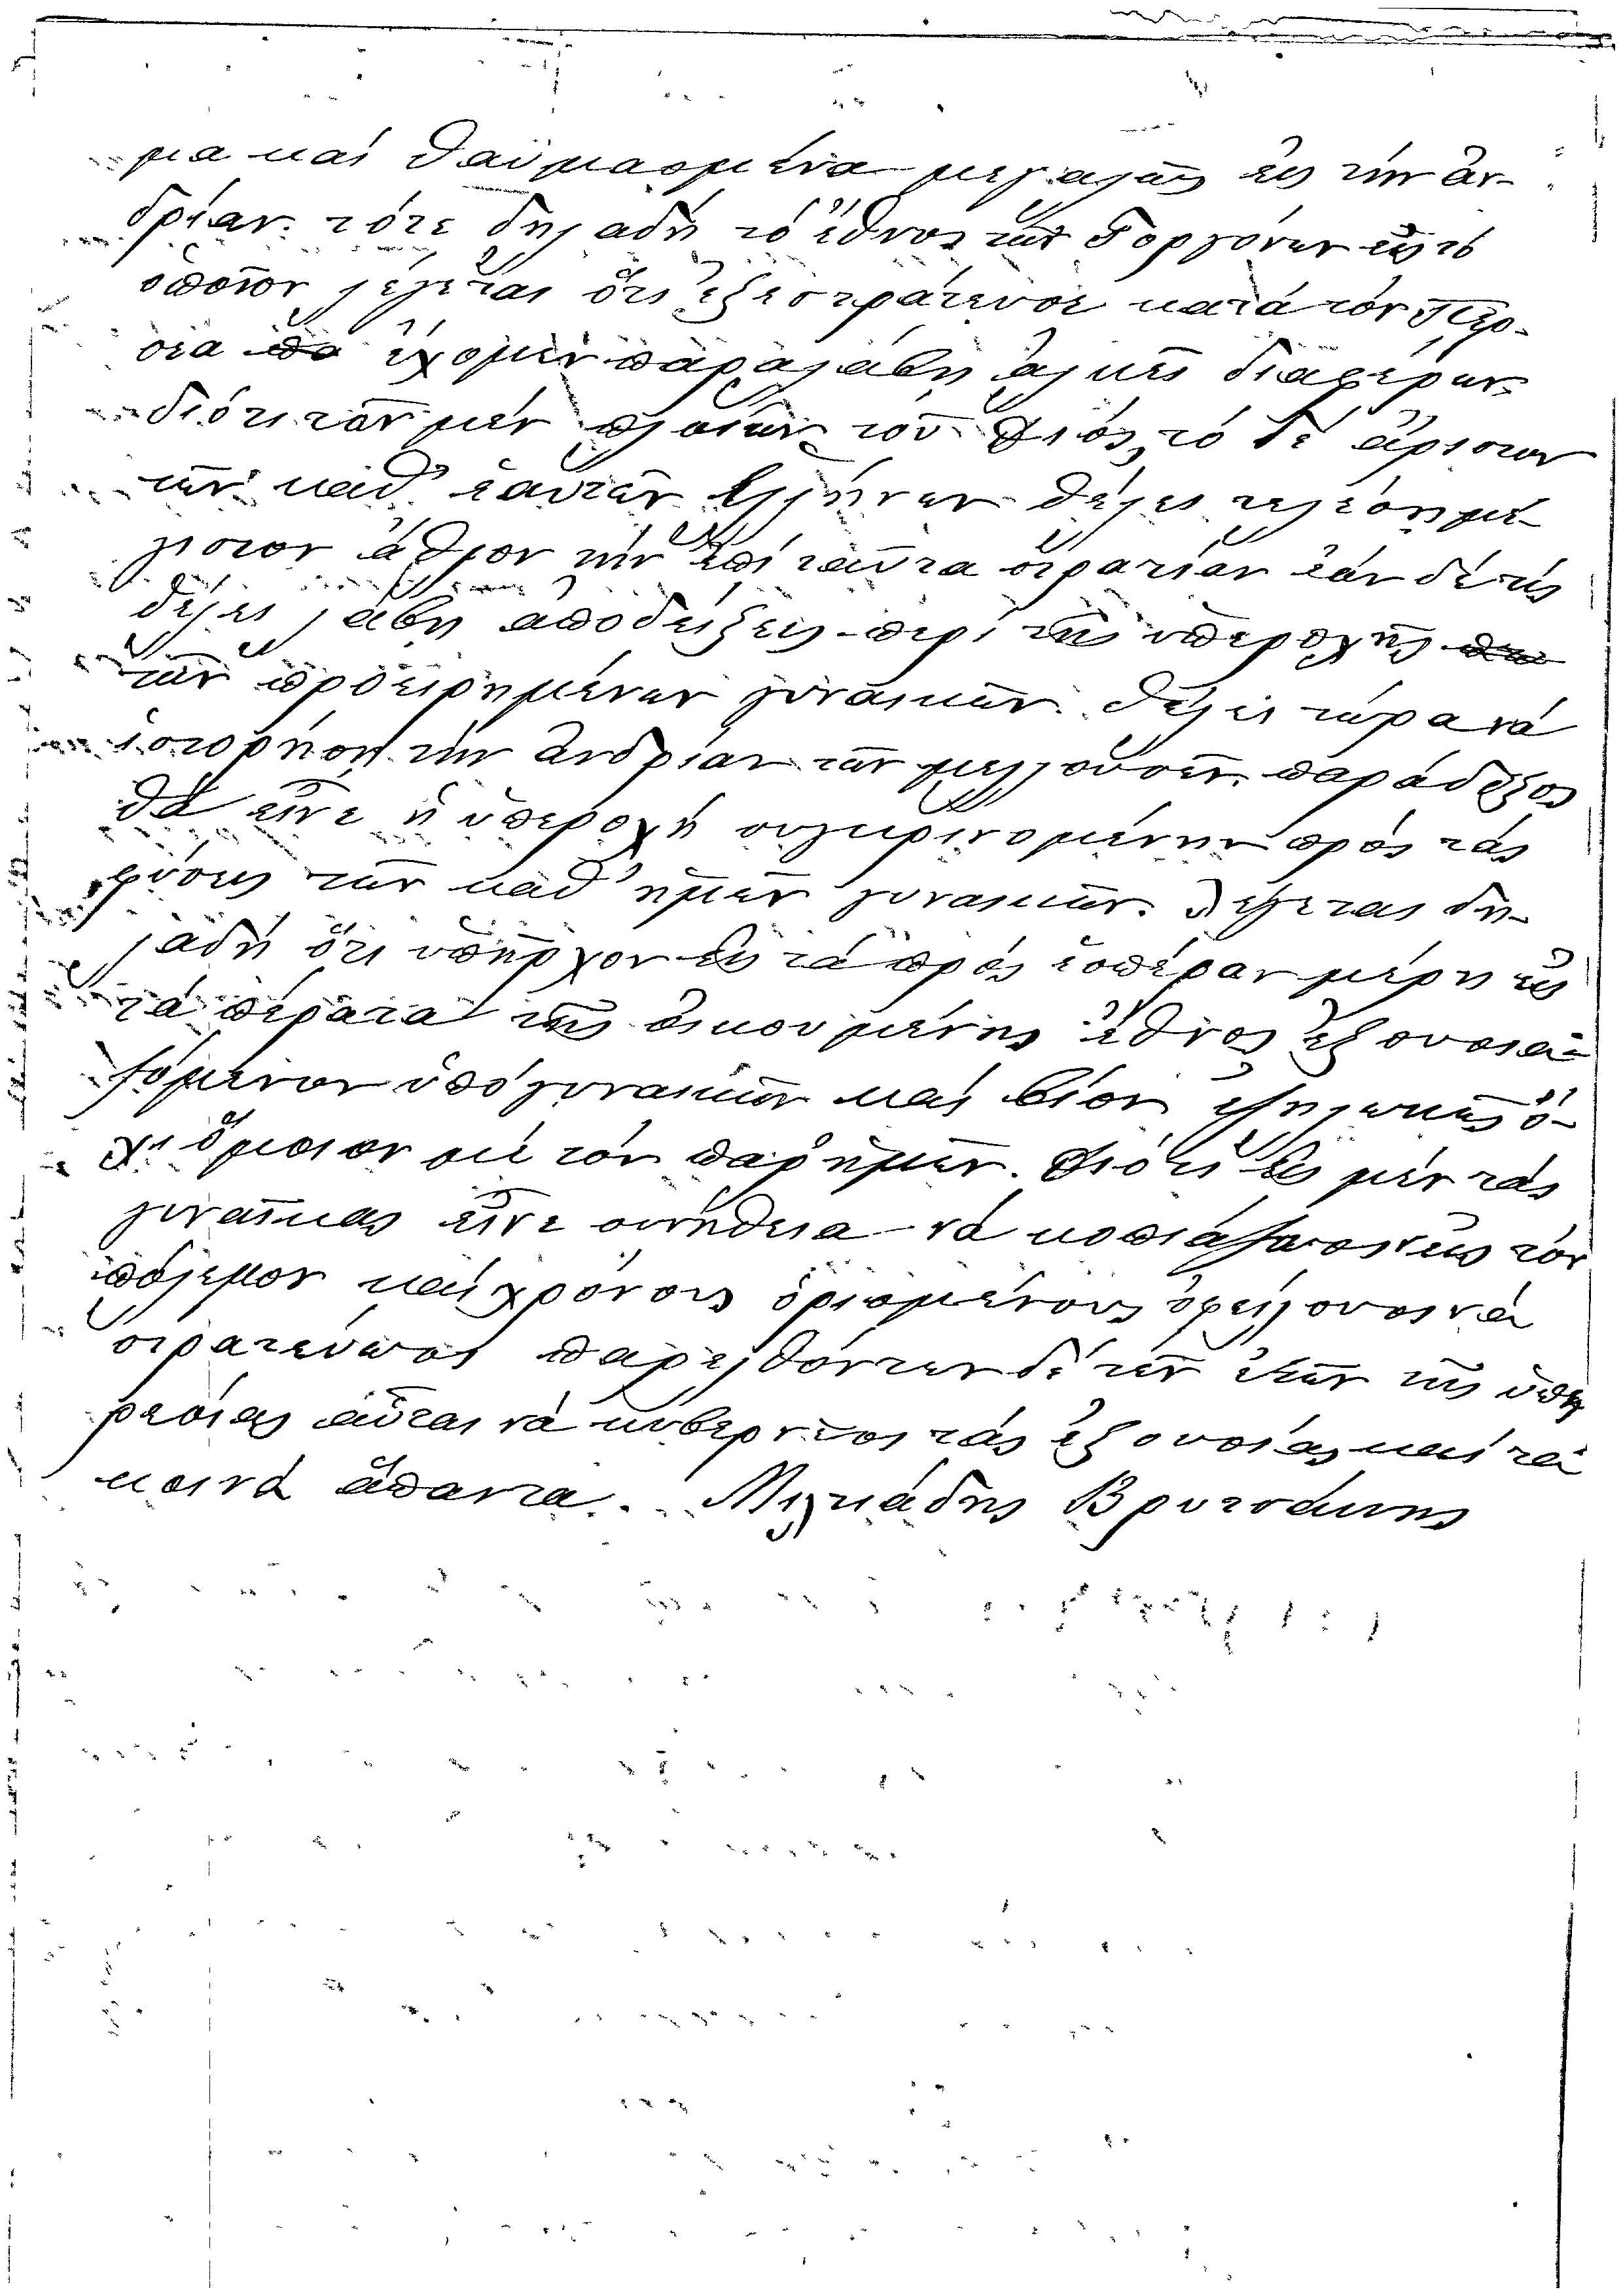 μια καὶ θαυμασμένα μεγάλως εἰς τὴν ἀν-
δρίαν. τότε δηλαδὴ τὸ ἔθνος τῶν Γοργόνων εἰς τὸ
ὁποῖον λέγεται ὅτι ἐξεστράτευσε κατὰ τὸν Περ-
σέα ἔχομεν παραλάβη ἀλκῇ διαφέρων
διότι τὸν μὲν υἱὸν τοῦ Διός, τὸ δὲ ἄριστον
τῶν καθ' ἑαυτὸν Ἑλλήνων θέλει τελέση μέ-
γιστον ἆθλον τὴν ἐπὶ ταῦτα στρατιάν ἐάν δέ τις
θέλει λάβη ἀποδείξεις περὶ τῆς ὑπεροχῆς
τῶν προειρημένων γυναικῶν. θέλει τώρα νὰ
ἱστορήση τὴν ἀνδρίαν τῶν μελλουσῶν παράδοξος
θὰ εἶνε ἡ ὑπεροχὴ συγκρινομένην πρὸς τὰς
φύσεις τῶν καθ' ἡμῶν γυναικῶν. Λέγεται δη-
λαδὴ ὅτι ὑπῆρχον εἰς τὰ πρὸς ἑσπέραν μέρη εἰς
τὰ πέρατα τῆς οἰκουμένης ἔθνος ἐξουσια-
ζόμενον ὑπὸ γυναικῶν καὶ βίον ὄ-
χι ὅμοιον μὲ τὸν παρ' ἡμῖν. Διότι εἰς μὲν τὰς
γυναῖκας εἶνε συνήθεια νὰ κοπιάζωσιν εἰς τὸν
πόλεμον καὶ χρόνους ὁρισμένους ὀφείλουσι νὰ
στρατεύωσι παρελθόντων δὲ τῶν ἐτῶν τῆς ὑπη
ρεσίας αὗται νὰ κυβερνῶσι τὰς ἐξουσίας καὶ τὰ
κοινὰ ἅπαντα. Μιλκιάδης